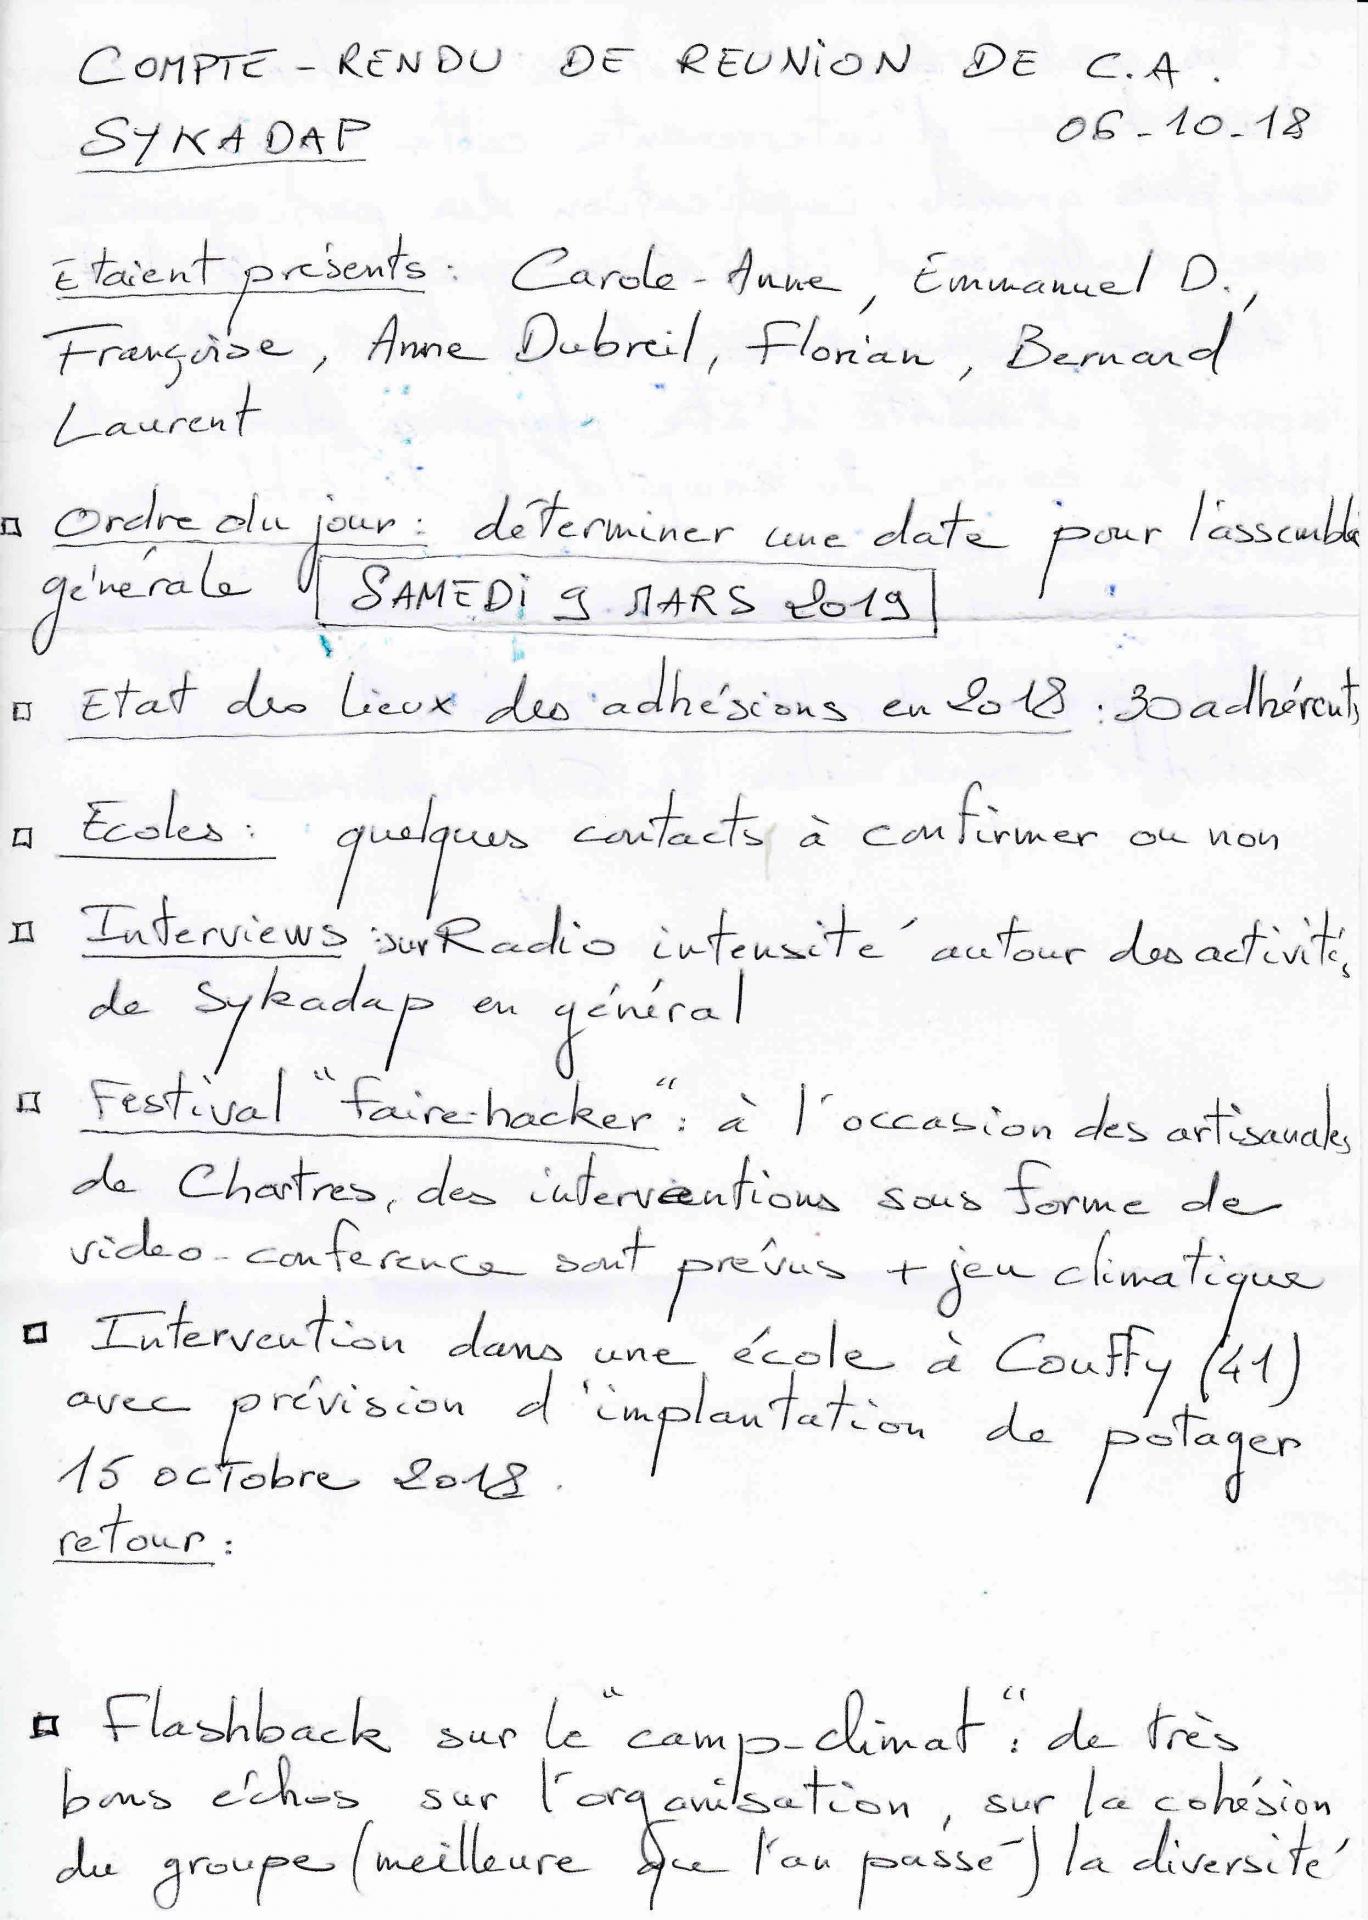 COMPTE-RENDU DE REUNION DE C.A.
SYKADAP 06-10-18
Etaient présents : Carole-Anne, Emmanuel D.,
Françoise, Anne Dubreil, Florian, Bernard
Laurent
Ordre du jour : déterminer une date pour l'assemblée
générale SAMEDI 9 MARS 2019
Etat des lieux des adhésions en 2018 : 30 adhérents
Ecoles : quelques contacts à confirmer ou non
Interviews : sur Radio intensité autour des activités
de Sykadap en général
Festival "faire-hacker" : à l'occasion des artisanales
de Chartres, des interventions sous forme de
video-conference sont prévus + jeu climatique
Intervention dans une école à Couffy (41)
avec prévision d'implantation de potager
15 octobre 2018.
retour :
Flashback sur le "camp-climat" : de très
bons échos sur l'organisation, sur la cohésion
du groupe (meilleure que l'an passé) la diversité